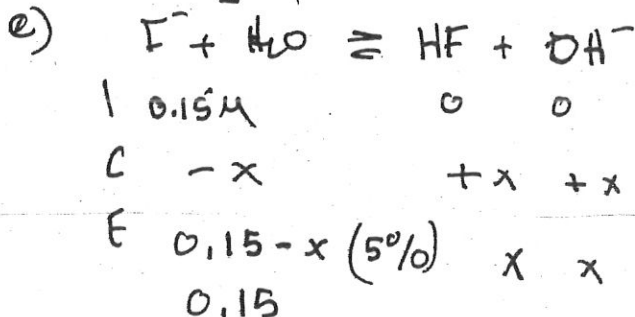 e) F⁻ + H₂O ⇌ HF + OH⁻
I 0.15M 0 0
C -x +x +x
E 0,15-x (5%) x x
0.15